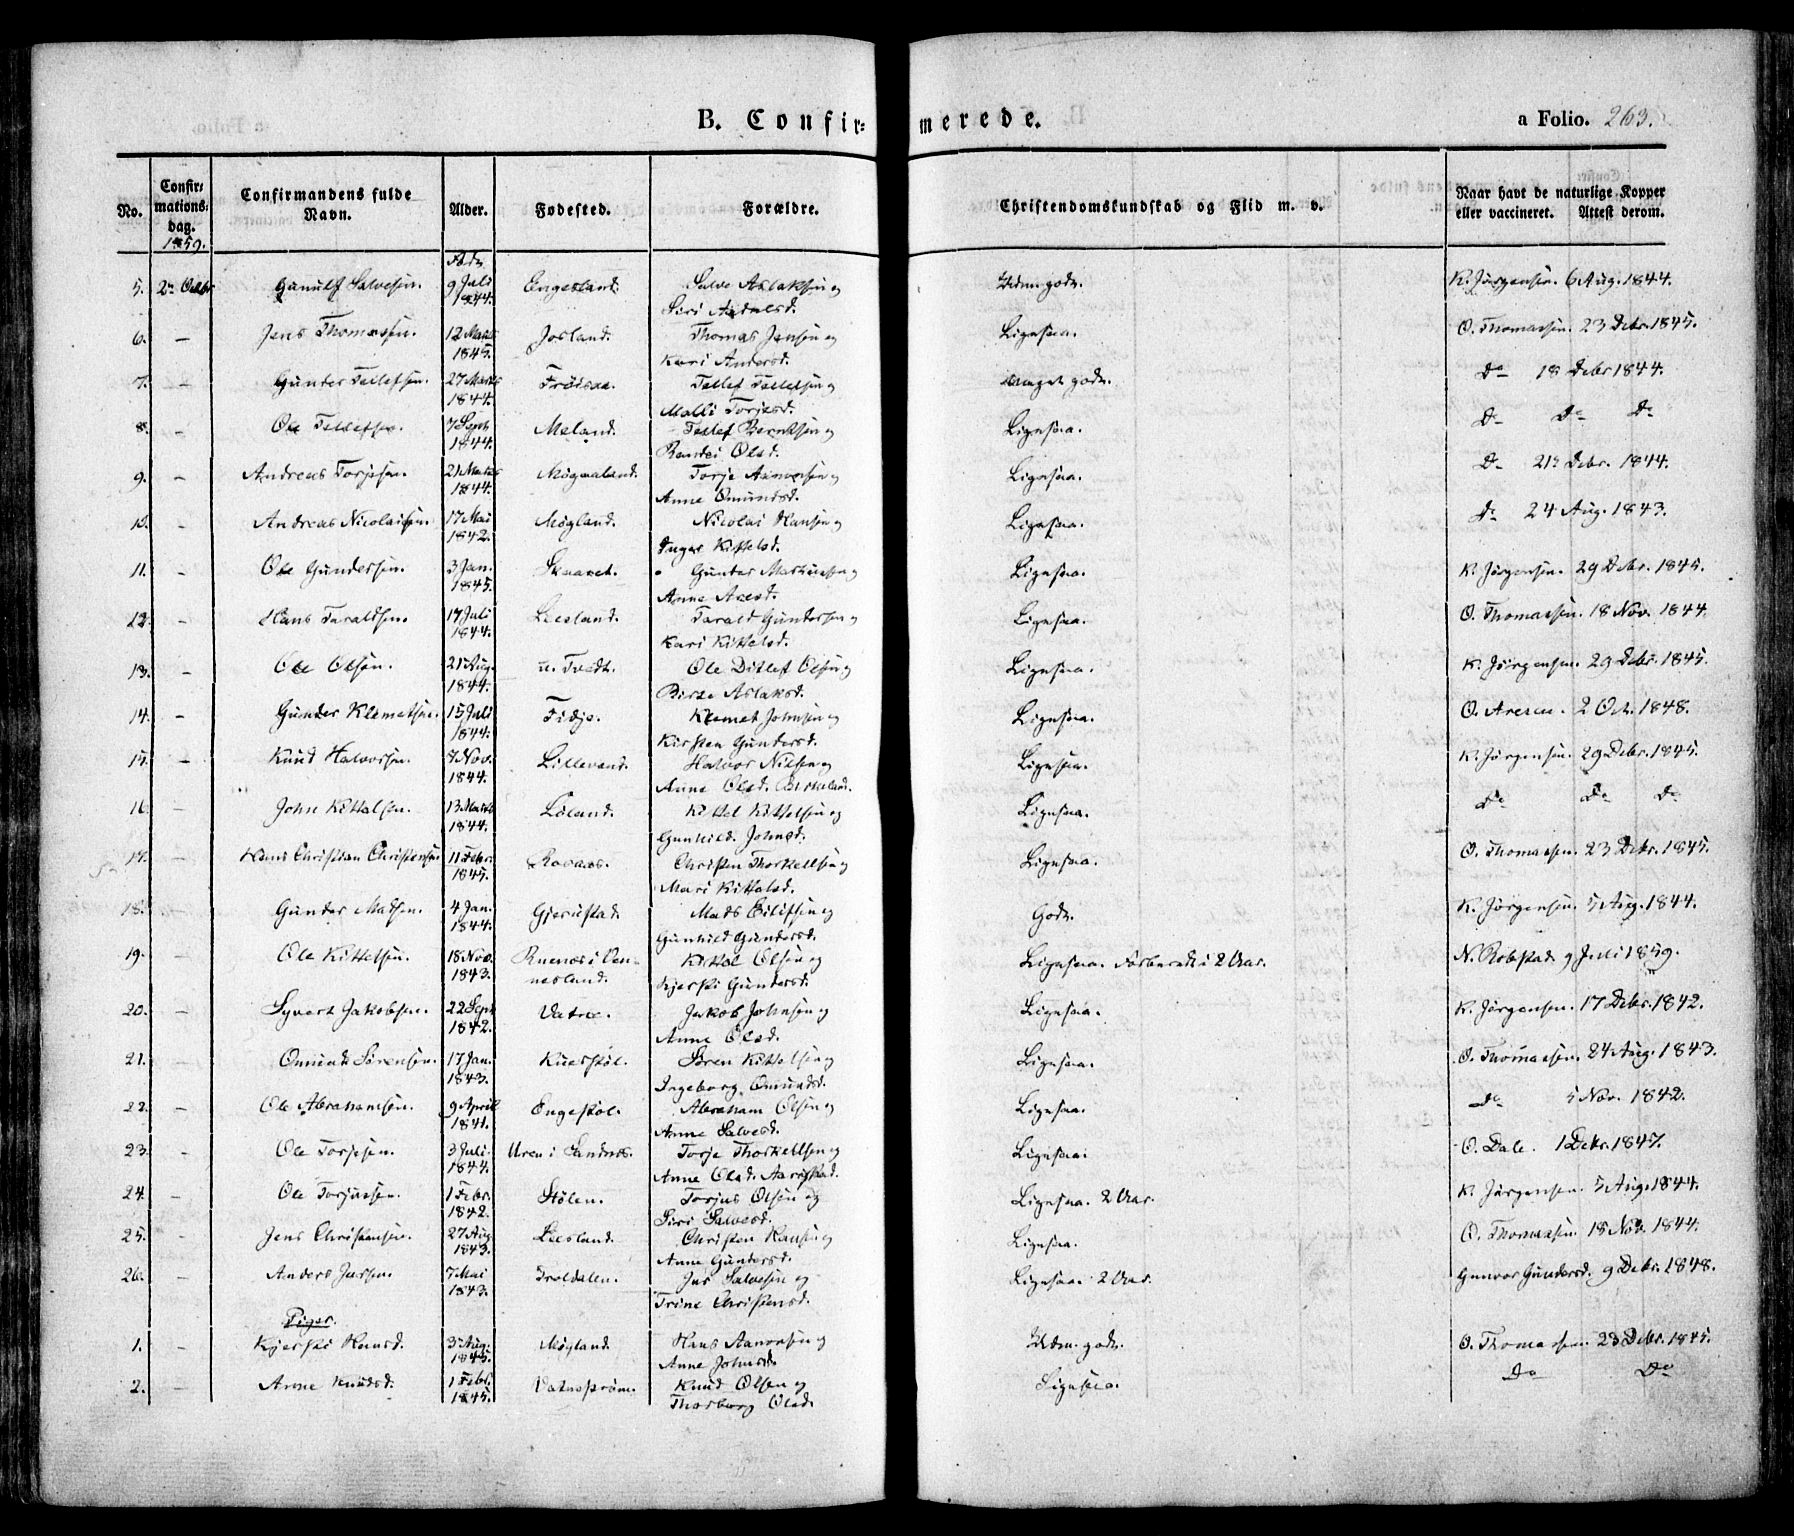 B. Confir= merede. a Folio. 263.
No. Confir= mations= dag. 1859. Confirmandens fulde Navn. Alder. Fødested. Forældre. Christendomskundskab og Flid m. v. Naar havt de naturlige Kopper eller vaccineret. Attest derom.
5. 2n Octbr Salvesen. 9 Juli Engesland. Salve Aslaksen og Udm. godt. K. Jørgensen. 6 Aug. 1844.
1844. Siri
6. — Jens Thomassen. 12 Marts Josland. Thomas Jensen og Ligesaa. O. Thomassen. 23 Debr. 1845.
1845. Kari Andersd.
7. — Gunder Tellefsen. 27 Marts Frøisaa. Tellef Tellefsen og meget godt. Do 18 Debr 1844.
1844. Malli Torjesd.
8. — Ole Tellefsen. 7 Sept Meland. Tellef Berntsen og Ligesaa. Do Do Do
1844. Randei Olsd.
9. — Andreas Torjesen. 21 Marts Møgaaland. Torje Aanonsen og Ligesaa. Do 21 Debr. 1844.
1844. Anne Omundsd.
10. — Andreas Nicolaisen. 17 Mai Møgland. Nicolai Hansen og Ligesaa. Do 24 Aug. 1843.
1842. Inger Kittelsd.
11. — Ole Gundersen. 3 Jan. Skaaret. Gunder Markussen og Ligesaa. K. Jørgensen. 29 Debr. 1845.
1845. Anne Aresd.
12. — Hans Taraldsen. 17 Juli Leesland. Tarald Gundersen og Ligesaa. O. Thomassen. 18 Nov. 1844.
1844. Kari Kittelsd.
13. — Ole Olsen. 21 Aug. n. Tvedt. Ole Ditlef Olsen og Ligesaa. K. Jørgensen. 29 Debr. 1845.
1844. Birte Aslaksd.
14. — Gunder Klemetsen. 15 Juli Fidje. Klemet Johnsen og Ligesaa. O. Aresen. 2 Oct. 1848.
1844. Kirsten Gundersd.
15. — Knud Halvorsen. 7 Nov. Lillevand. Halvor Nilsen og Ligesaa. K. Jørgensen. 29 Debr. 1845.
1844. Anne Olsd. Birkeland.
16. — John Kittelsen. 13 Marts Løland. Kittel Kittelsen og Ligesaa. Do Do Do
1844. Gunhild Johnsd.
17. — Hans Christian Christensen 11 Febr. Rosaas. Christen Thorkelsen og Ligesaa. O. Thomassen. 23 Debr. 1845.
1845. Mari Kittelsd.
18. — Gunder Madsen. 4 Jan. Gjerustad. Mads Eilifsen og Godt. K. Jørgensen. 5 Aug. 1844.
1844. Gunhild Gundersd.
19. — Ole Kittelsen. 18 Nov. Ruenæs i Ven= Kittel Olsen og Ligesaa. Forberedt i 2 Aar. N. Robstad 9 Juli 1859.
1843. nesland. Kjersti Gundersd.
20. — Syvert Jakobsen. 22 Sept Vatne. Jakob Johnsen og Ligesaa. K. Jørgensen. 17 Debr. 1842.
1842. Anne Olsd.
21. — Omund Sørensen. 17 Jan. Kuerstøl. Søren Kittelsen og Ligesaa. O. Thomassen. 24 Aug. 1843.
1843. Ingeborg Omundsd.
22. — Ole Abrahamsen. 9 April Engestøl. Abraham Olsen og Ligesaa. Do 5 Nov. 1842.
1841. Anne Salvesd.
23. — Ole Torjesen. 3 Juli. Uren i Sandnes. Torje Thorkelsen og Ligesaa. O. Dale. 1 Debr. 1847.
1844. Anne Olsd.
24. — Ole Torjussen. 1 Febr. Stølen. Torjus Olsen og Ligesaa. 2 Aar. K. Jørgensen. 5 Aug. 1844.
1842. Siri Salvesd.
25. — Jens Christensen. 27 Aug. Leesland. Christen Hansen og Ligesaa. O. Thomassen 18 Nov. 1844.
1843. Anne Gundersd.
26. — Anders Jensen. 7 Mai Iveldalen. Jens Salvesen og Ligesaa. 2 Aar. Gunvor Gundersd. 9 Debr. 1848.
1843. Trine Christensd.
Piger.
1. — Kjersti Hansd. 3 Aug. Møgland. Hans Aanonsen og Udm. godt. O. Thomassen. 23 Debr. 1845.
1845. Anne Johnsd.
2. — Anne Knudsd. 1 Febr. Vatnestrøm. Knud Olsen og Ligesaa. Do Do
1845. Thorborg Olsd.